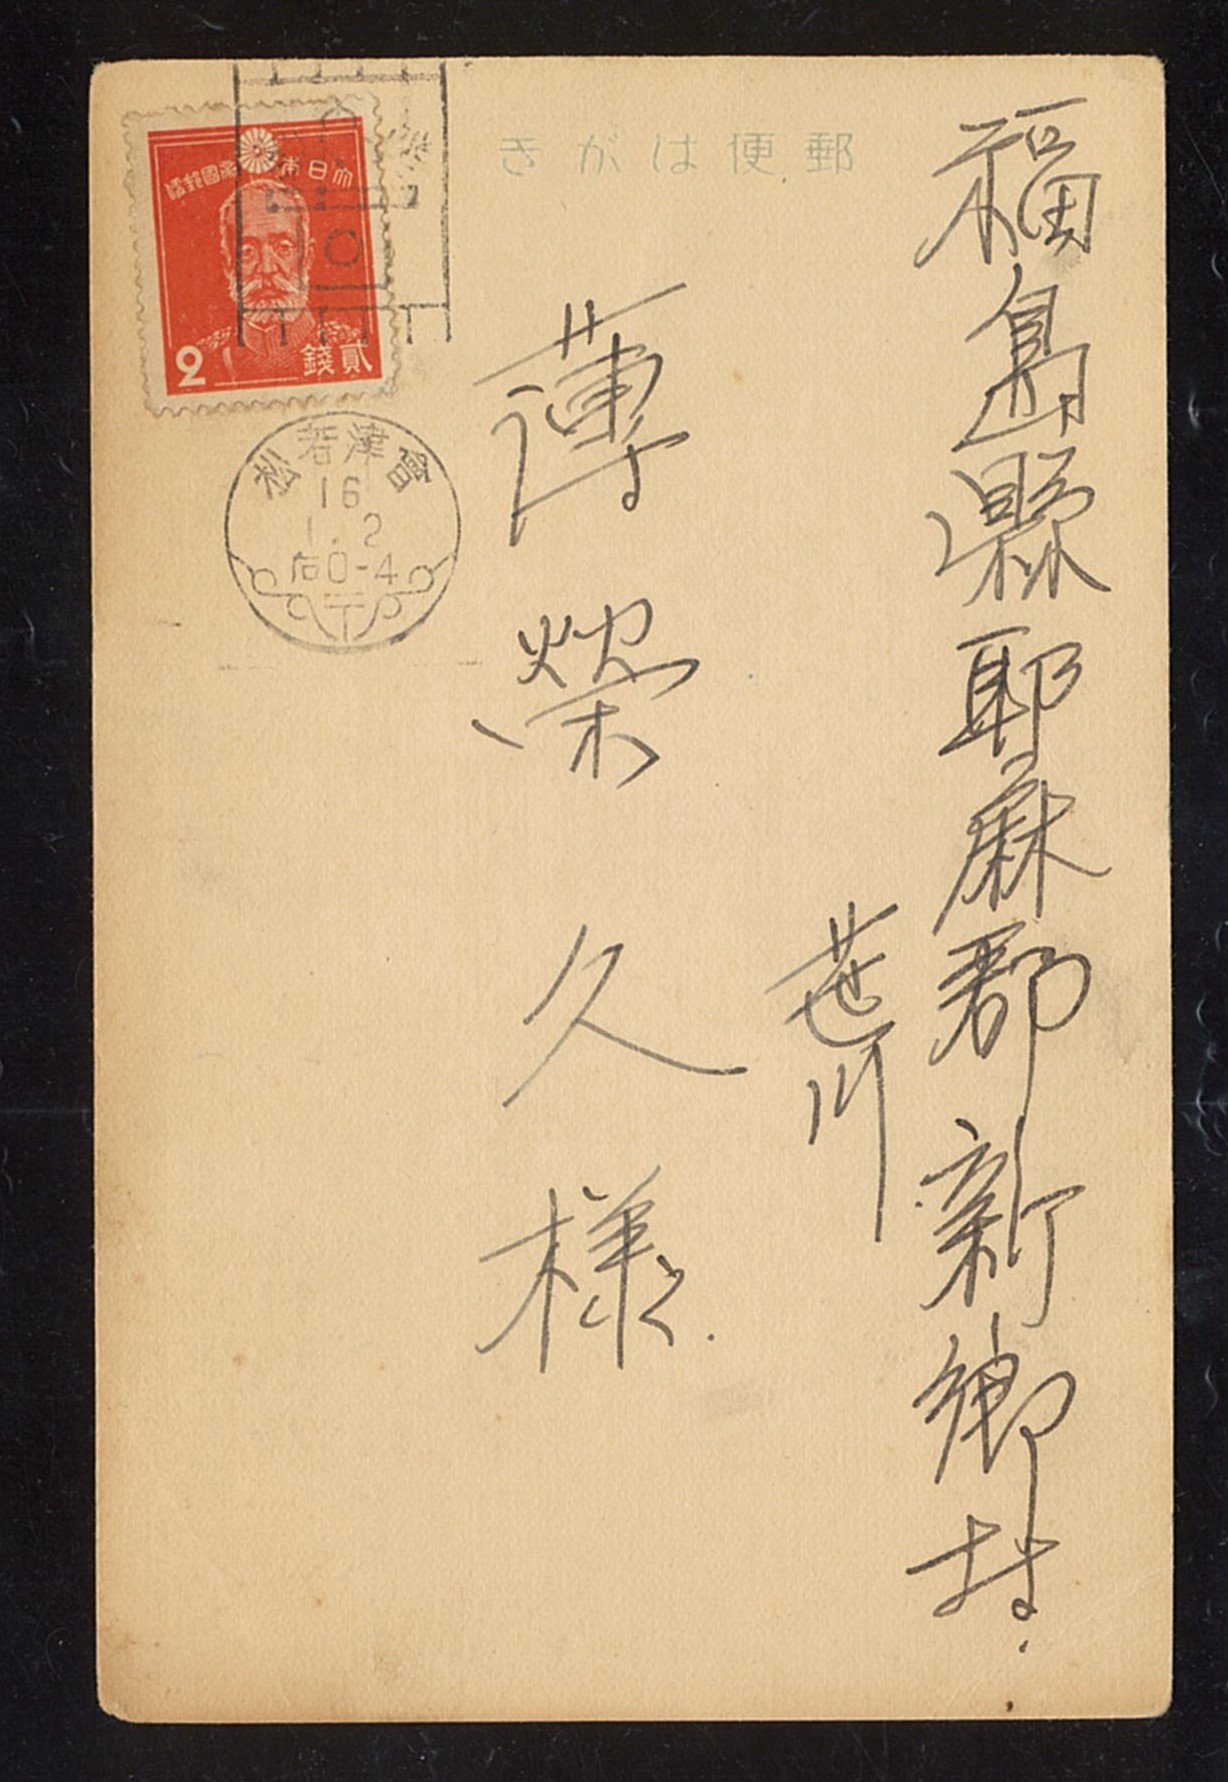 郵便はがき
福島縣耶麻郡新郷村
笹川
薄榮久様
大日本帝國郵便
2
貳錢
會津若松
16
1.2
后0-4